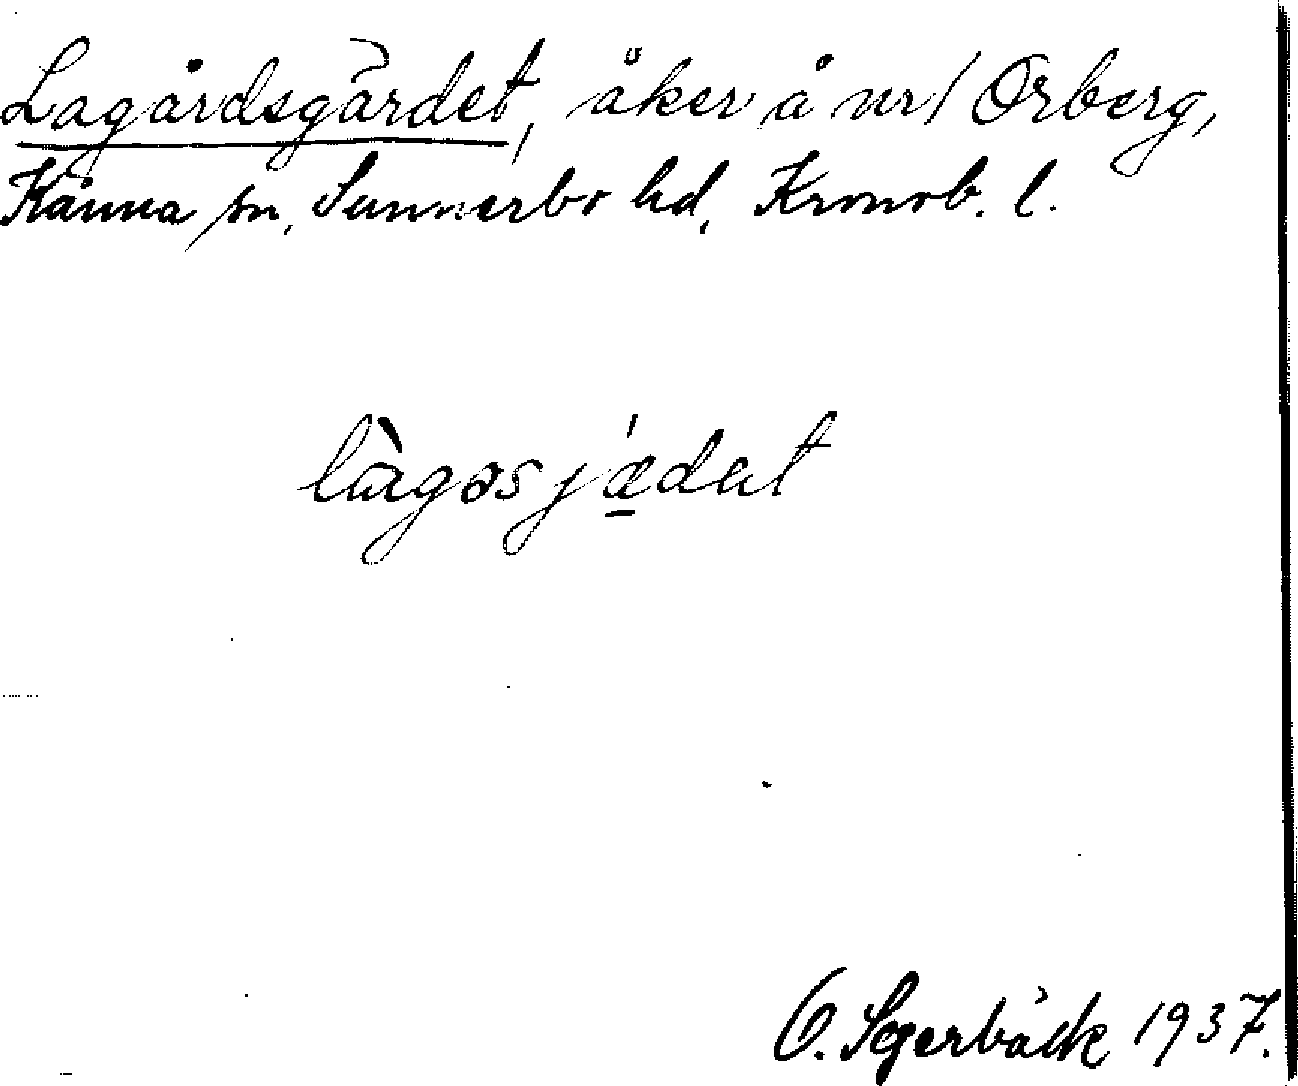 Lagårdsgärdet, åker å nr 1 Örberg,
Kånna sn, Sunnerbo hd, Kronob. l.
làgəsjǽdət
O. Segerbäck 1937.